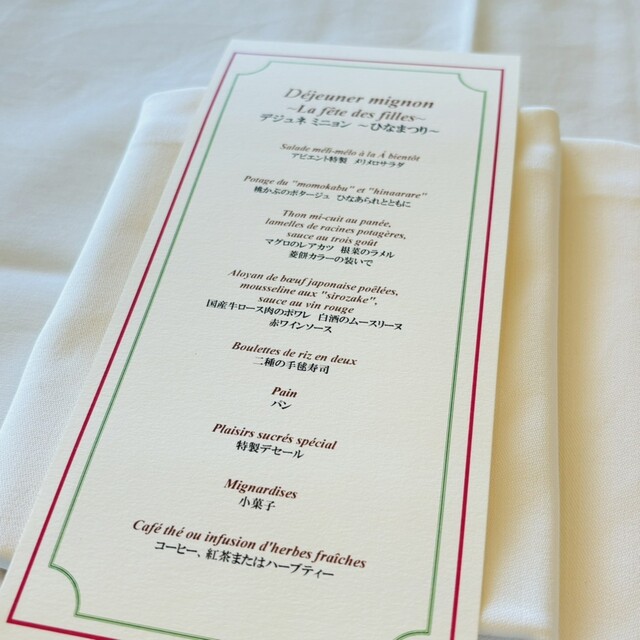 Déjeuner mignon
~La fête des filles~
デジュネ ミニョン ～ひなまつり～
Salade méli-mélo à la À bientôt
アビエント特製 メリメロサラダ
Potage du "momokabu" et "hinaarare"
桃かぶのポタージュ ひなあられとともに
Thon mi-cuit au panée,
lamelles de racines potagères,
sauce au trois goût
マグロのレアカツ 根菜のラメル
菱餅カラーの装いで
Aloyan de bœuf japonaise poëlées,
mousseline aux "sirozake",
sauce au vin rouge
国産牛ロース肉のポワレ 白酒のムースリーヌ
赤ワインソース
Boulettes de riz en deux
二種の手毬寿司
Pain
パン
Plaisirs sucrés spécial
特製デセール
Mignardises
小菓子
Café thé ou infusion d'herbes fraîches
コーヒー、紅茶またはハーブティー